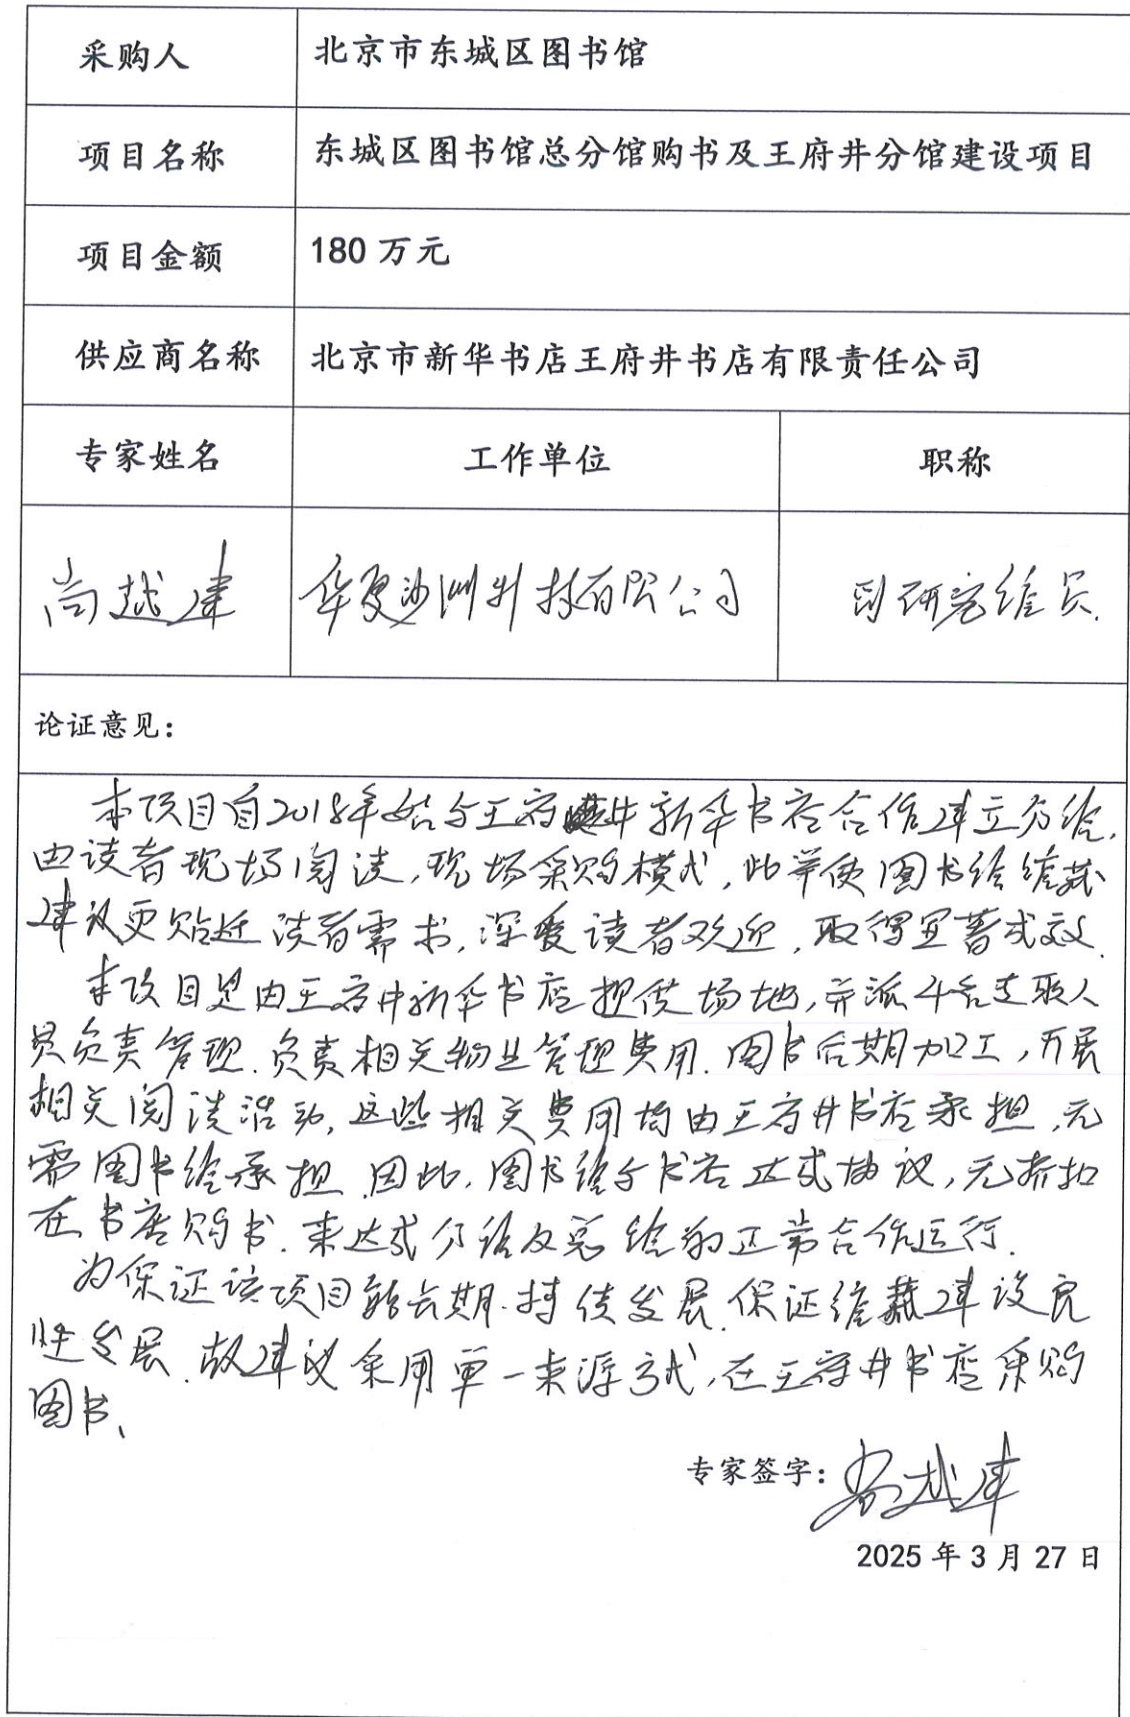 采购人 北京市东城区图书馆
项目名称 东城区图书馆总分馆购书及王府井分馆建设项目
项目金额 180 万元
供应商名称 北京市新华书店王府井书店有限责任公司
专家姓名 工作单位 职称
尚越建 华夏沙洲科技有限公司 副研究馆员.
论证意见:
本项目自2018年始与王府井新华书店合作建立分馆,
由读者现场阅读,现场采购模式,此举使图书馆馆藏
建设更贴近读者需求,深受读者欢迎,取得显著成效.
本项目是由王府井新华书店提供场地,并派4名专职人
员负责管理.负责相关物业管理费用.图书后期加工,开展
相关阅读活动,这些相关费用均由王府井书店承担,无
需图书馆承担.因此,图书馆与书店达成协议,无折扣
在书店购书.来达成分馆及总馆的正常合作运行.
为保证该项目能长期.持续发展.保证馆藏建设良
性发展.故建议采用单一来源方式,在王府井书店采购
图书、
专家签字: 尚越建
2025 年 3 月 27 日